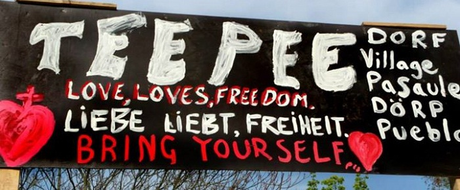 TEEPEE
LOVE, LOVES, FREEDOM.
LIEBE LIEBT, FREIHEIT.
BRING YOURSELF...
DORF
Village
Pasaule
DÖRP
Pueblo